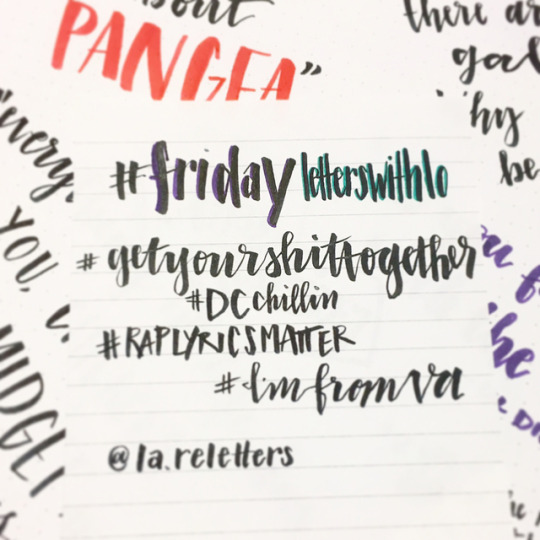 about
PANGEA"
there ar
gal
hy
be
"very
YOU, V.
MIDGET
#fridayletterswithlo
#getyourshittogether
#DCchillin
#RAPLYRICSMATTER
#I'mfromva
@la.reletters
he